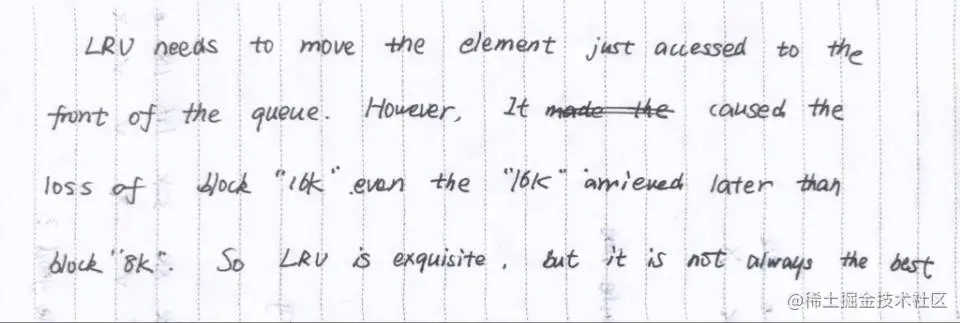 LRU needs to move the element just accessed to the
front of the queue. However, It made the caused the
loss of block "16K" even the "16K" arrieved later than
block "8K". So LRU is exquisite, but it is not always the best
@稀土掘金技术社区